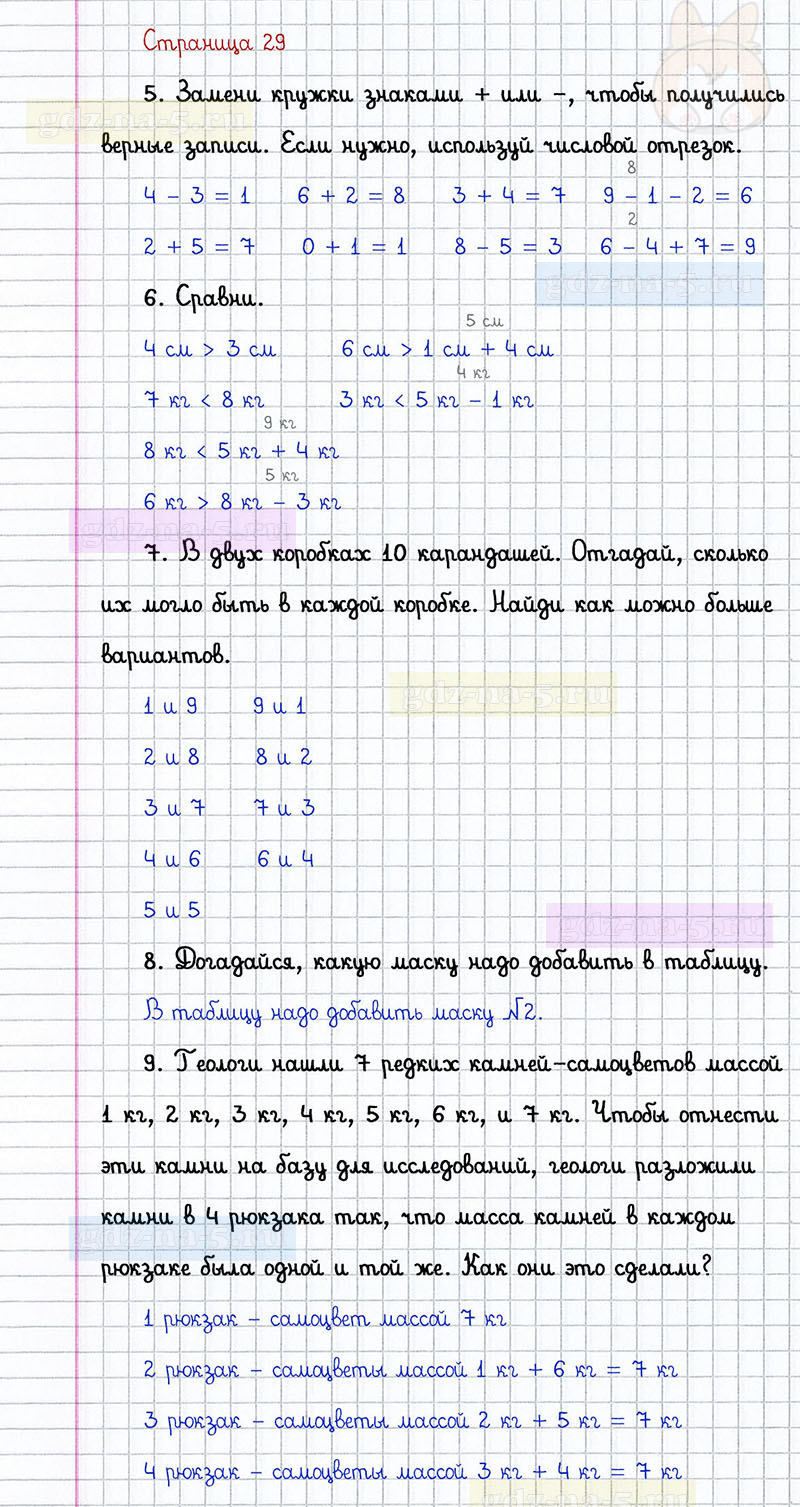 Страница 29
5. Замени кружки знаками + или -, чтобы получились
gdz-na-5.ru
верные записи. Если нужно, используй числовой отрезок.
8
4 - 3 = 1 6 + 2 = 8 3 + 4 = 7 9 - 1 - 2 = 6
2
2 + 5 = 7 0 + 1 = 1 8 - 5 = 3 6 - 4 + 7 = 9
gdz-na-5.ru
6. Сравни.
5 см
4 см > 3 см 6 см > 1 см + 4 см
4 кг
7 кг < 8 кг 3 кг < 5 кг - 1 кг
9 кг
8 кг < 5 кг + 4 кг
5 кг
6 кг > 8 кг - 3 кг
gdz-na-5.ru
7. В двух коробках 10 карандашей. Отгадай, сколько
их могло быть в каждой коробке. Найди как можно больше
вариантов.
gdz-na-5.ru
1 и 9 9 и 1
2 и 8 8 и 2
3 и 7 7 и 3
4 и 6 6 и 4
5 и 5
gdz-na-5.ru
8. Догадайся, какую маску надо добавить в таблицу.
В таблицу надо добавить маску №2.
9. Геологи нашли 7 редких камней-самоцветов массой
1 кг, 2 кг, 3 кг, 4 кг, 5 кг, 6 кг, и 7 кг. Чтобы отнести
эти камни на базу для исследований, геологи разложили
камни в 4 рюкзака так, что масса камней в каждом
gdz-na-5.ru
рюкзаке была одной и той же. Как они это сделали?
1 рюкзак - самоцвет массой 7 кг
2 рюкзак - самоцветы массой 1 кг + 6 кг = 7 кг
3 рюкзак - самоцветы массой 2 кг + 5 кг = 7 кг
4 рюкзак - самоцветы массой 3 кг + 4 кг = 7 кг
gdz-na-5.ru